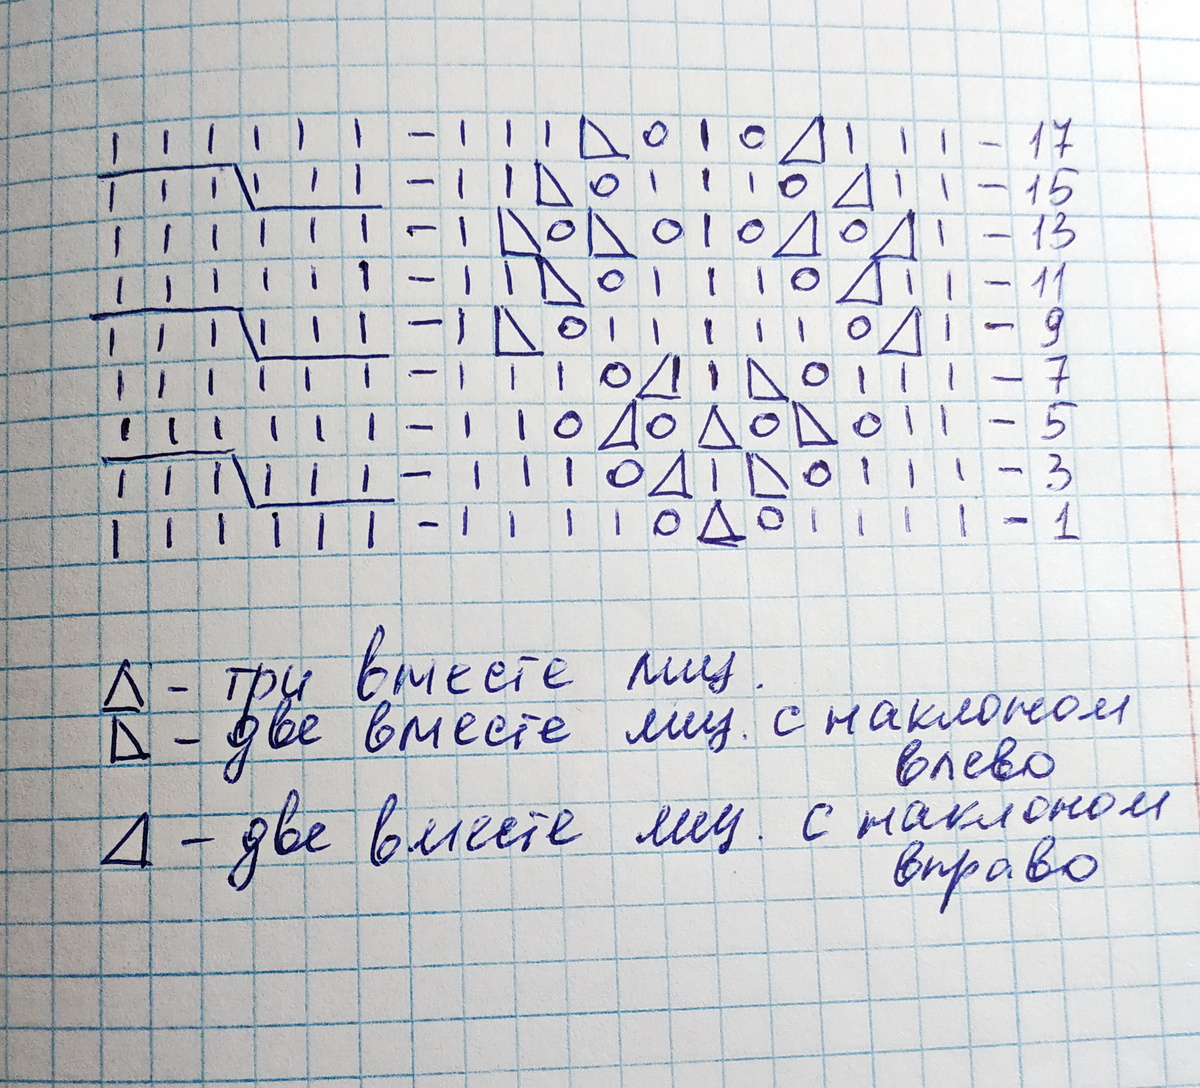 | | | | | | - | | | ◺ o | o ◿ | | | - 17
| | | | | | - | | ◺ o | | | o ◿ | | - 15
| | | | | | - | ◺ o ◺ o | o ◿ o ◿ | - 13
| | | | | | - | | ◺ o | | | o ◿ | | - 11
| | | | | | - | ◺ o | | | | | o ◿ | - 9
| | | | | | - | | | o ◿ | ◺ o | | | - 7
| | | | | | - | | o ◿ o △ o ◺ o | | - 5
| | | | | | - | | | o ◿ | ◺ o | | | - 3
| | | | | | - | | | | o △ o | | | | - 1
△ - три вместе лиц.
◺ - две вместе лиц. с наклоном
влево
◿ - две вместе лиц. с наклоном
вправо